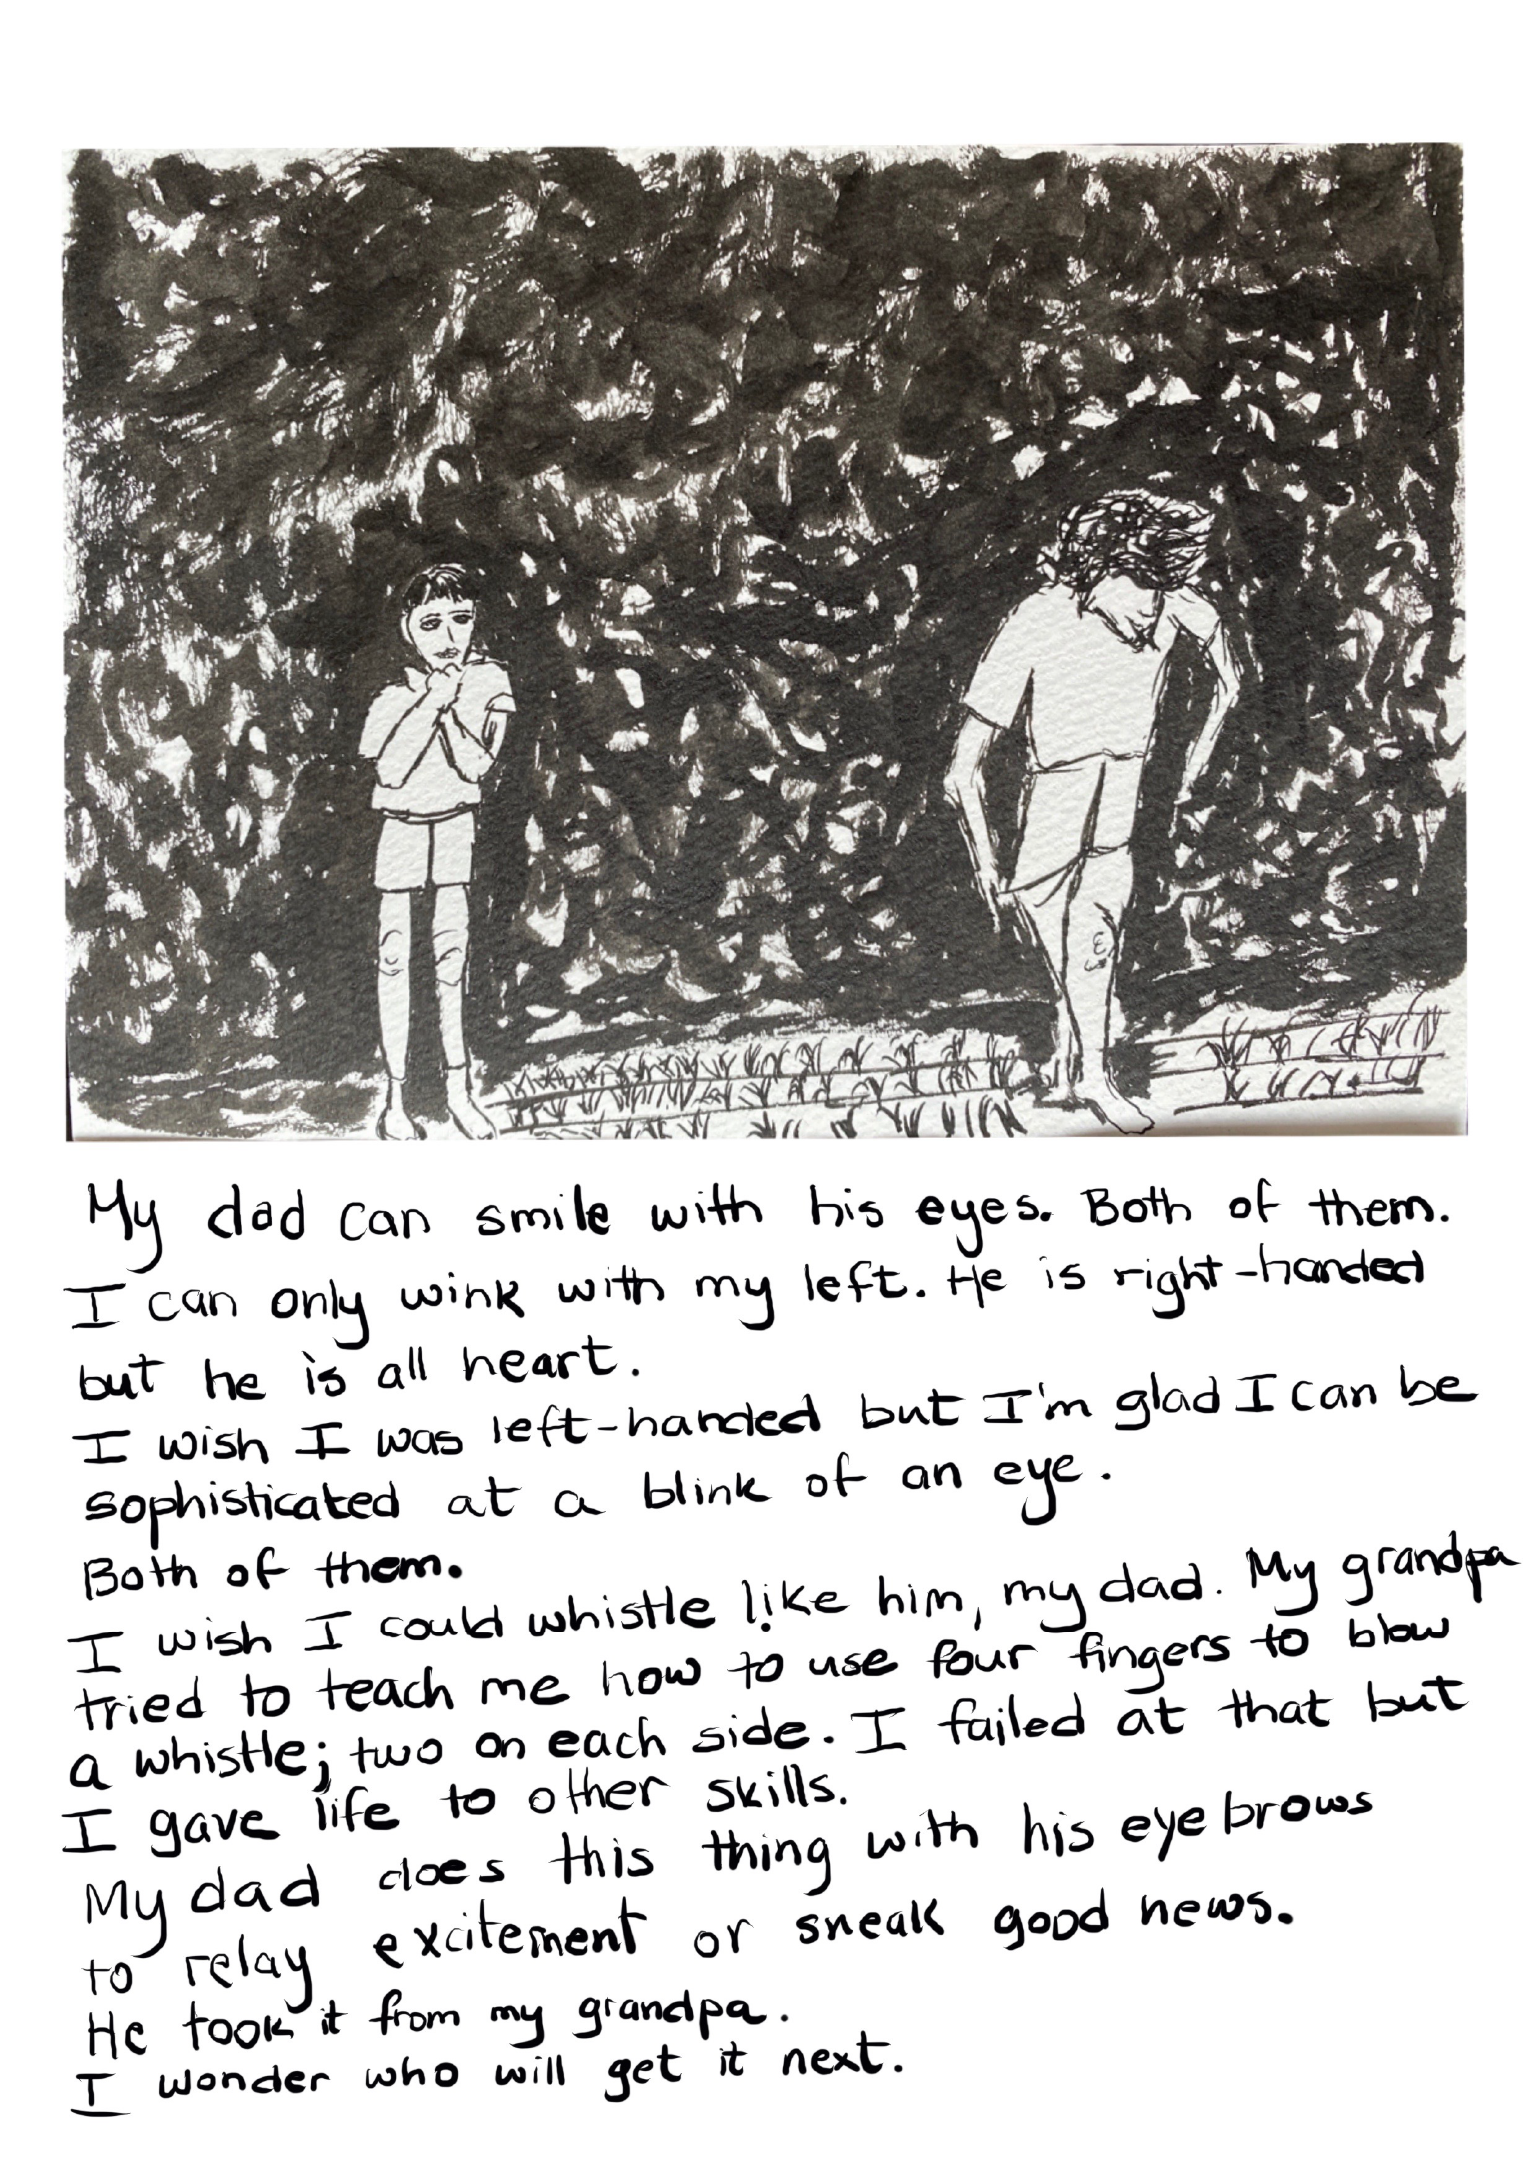 My dad can smile with his eyes. Both of them.
I can only wink with my left. He is right-handed
but he is all heart.
I wish I was left-handed but I'm glad I can be
sophisticated at a blink of an eye.
Both of them.
I wish I could whistle like him, my dad. My grandpa
tried to teach me how to use four fingers to blow
a whistle; two on each side. I failed at that but
I gave life to other skills.
My dad does this thing with his eyebrows
to relay excitement or sneak good news.
He took it from my grandpa.
I wonder who will get it next.